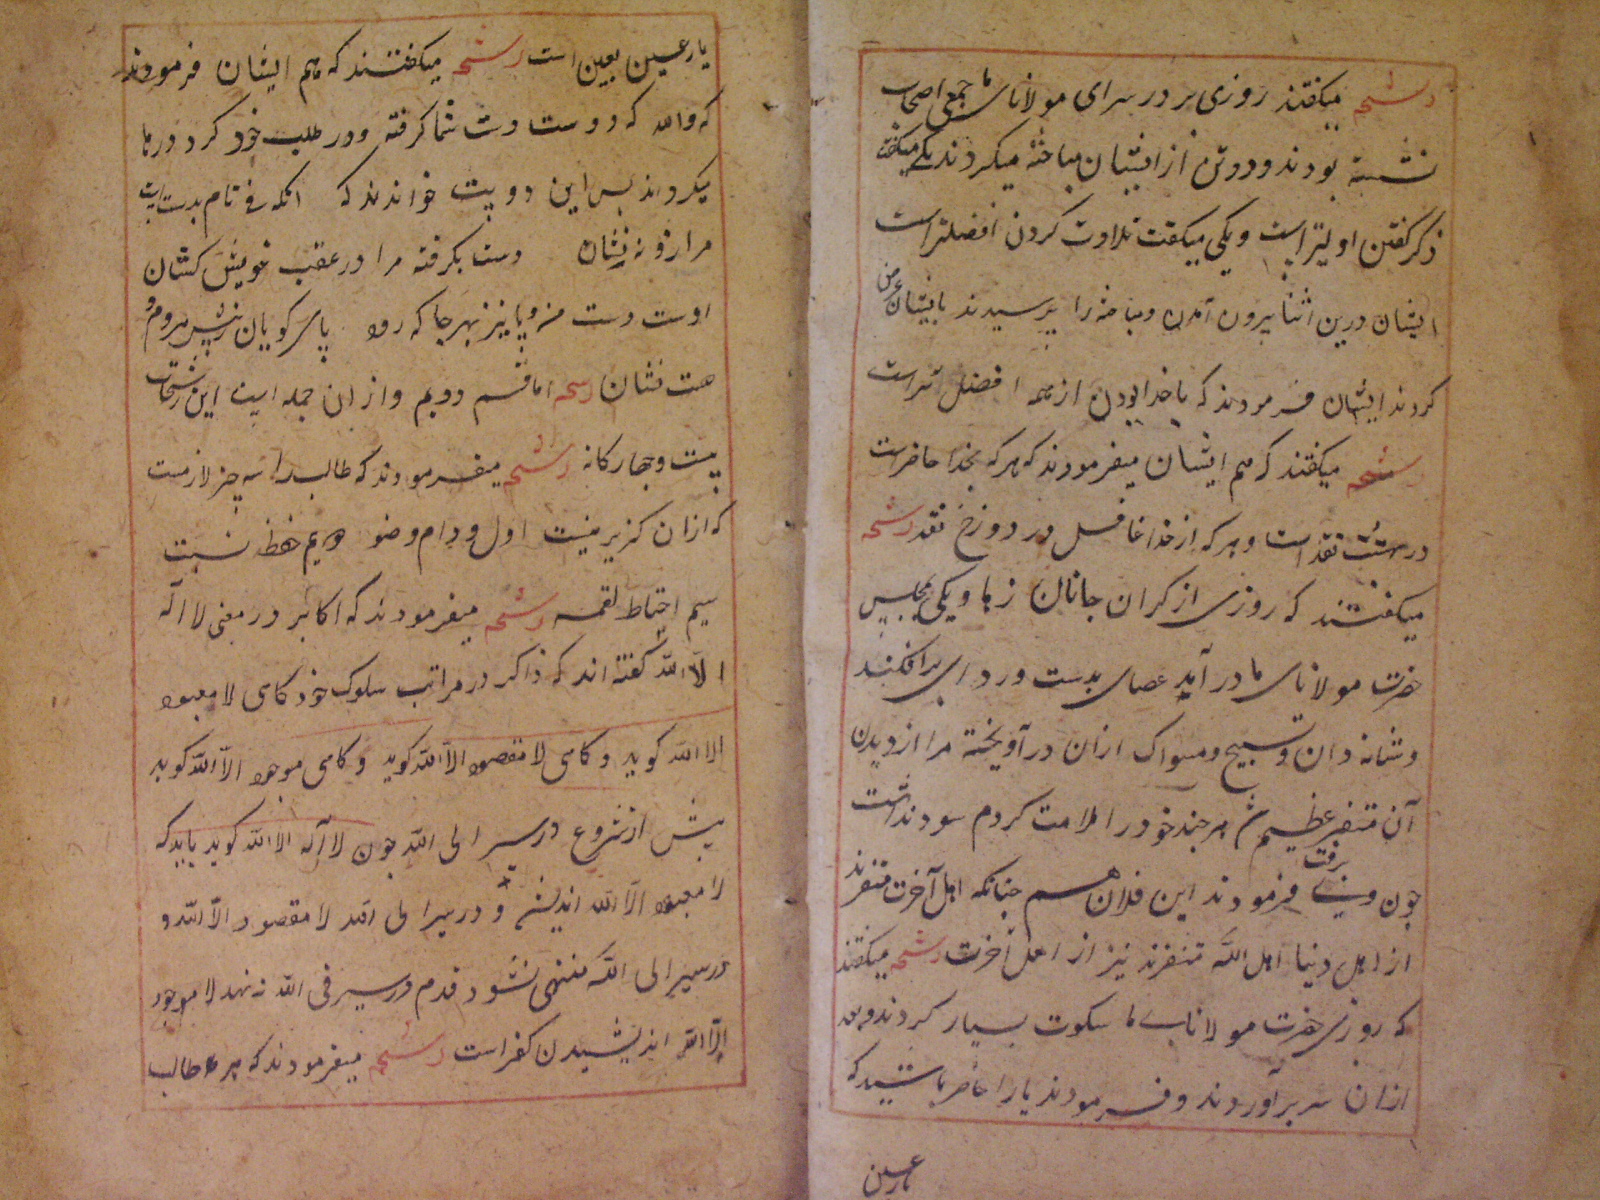 رشحه میکفتند روزی بر در سرای مولانای ما جمعی اصحاب
نشسته بودند و دو تن از ایشان مباحثه میکردند یکی میکفت
ذکر کفتن اولیتر است و یکی میکفت تلاوت کردن افضلتر است
ایشان درین اثنا بیرون آمدن و مباحثه را پرسیدند بایشان عرض
کردند ایشان فرمودند که با خدا بودن از همه افضل تر است
رشحه میکفتند که هم ایشان میفرمودند که هر که بخدا حاضرست
در بهشت نقد است و هر که از خدا غافل در دوزخ نقد رشحه
میکفتند که روزی از کران جانان زها و یکی بمجلس
حضرت مولانای ما در آمد عصای بدست و ردای برافکنده
و شانه دان و تسبیح و مسواک ازان در آویخته مرا از دیدن
آن متنفر عظیم شد هر چند خود را ملامت کردم سود نداشت
چون وی برفت فرمودند این فلان هم چنانکه اهل آخرت متنفرند
از اهل دنیا اهل الله متنفرند نیز از اهل آخرت رشحه میکفتند
که روزی حضرت مولانای ما سکوت بسیار کردند و بعد
ازان سر برآوردند و فرمودند یارا حاضر باشید که
یار عین
یار عین بعین است رشحه میکفتند که هم ایشان فرمودند
که والله که دوست دست شما کرفته و در طلب خود کرد درها
میکرداند پس این دو بیت خواندند که آنکه نی نام بدست است
مرا زو نه نشان دست بکرفته مرا در عقب خویش کشان
اوست دست من و پا نیز بهر جا که رود پای کویان ز پیش میروم و
دست فشان رشحه اما قسم دویم و از ان جمله است این رشحات
بیست و چهارکانه رشحه میفرمودند که طالب را سه چیز لازمست
که ازان کزیر نیست اول دوام وضو دویم حفظ نسبت
سیم احتیاط لقمه رشحه میفرمودند که اکابر در معنی لا اله
الا الله کفته اند که ذاکر در مراتب سلوک خود کاهی لا معبود
الا الله کوید و کاهی لا مقصود الا الله کوید و کاهی لا موجود الا الله کوید
پیش از شروع در سیر الی الله چون لا اله الا الله کوید باید که
لا معبود الا الله اندیشد و در سیر الی الله لا مقصود الا الله و
در سیر الی الله منتهی نشود قدم در سیر فی الله نه نهد لا موجود
الا الله اندیشیدن کفر است رشحه میفرمودند که هر طالب